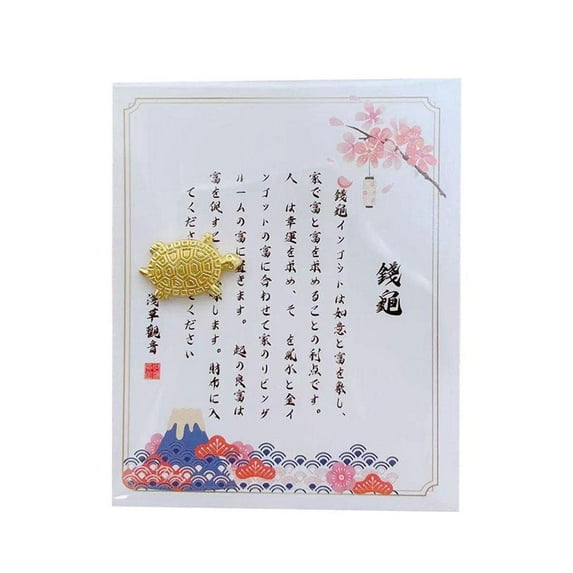 錢龜
錢龜インゴットは如意と富を象し、
家で富と富を求めることの利点です。
人 は幸運を求め、そ を風水と金イ
ンゴットの富に合わせて家のリビング
ルームの富に置きます。 起の良富は
富を促すこ します。財布に入
てくださ ください
浅草觀音